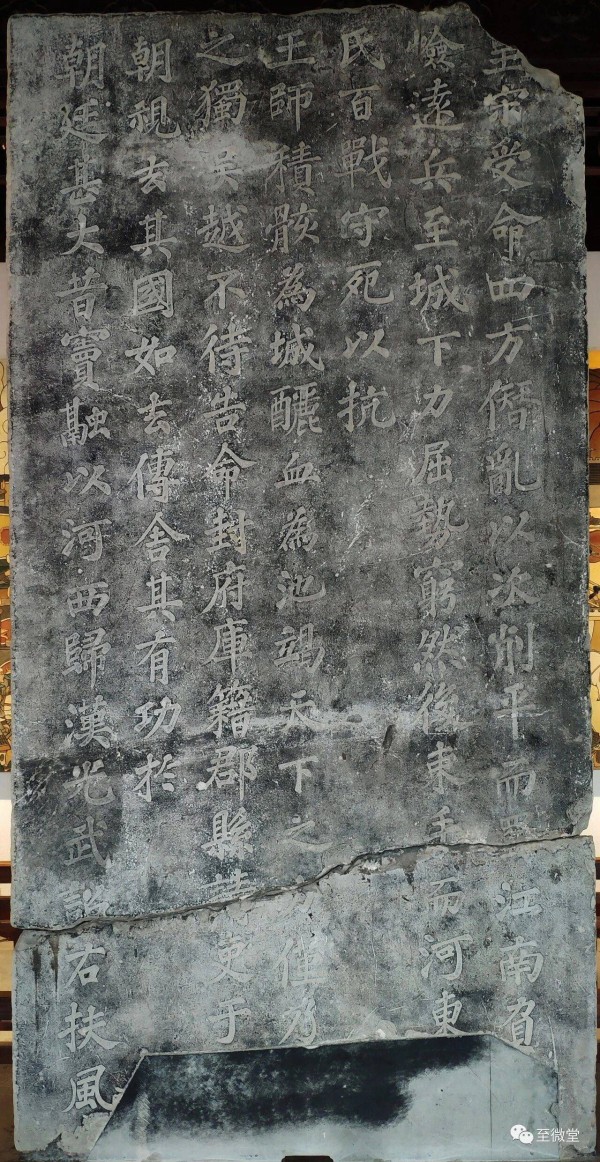 宋受命四方僭亂以次削平而江南負
嶮遠兵至城下力屈勢窮然後束手而河東
氏百戰守死以抗
王師積骸為城釃血為池竭天下之僅乃
之獨吳越不待告命封府庫籍郡縣請吏于
朝視去其國如去傳舍其有功於
朝廷甚大昔竇融以河西歸漢光武詔右扶風
至微堂